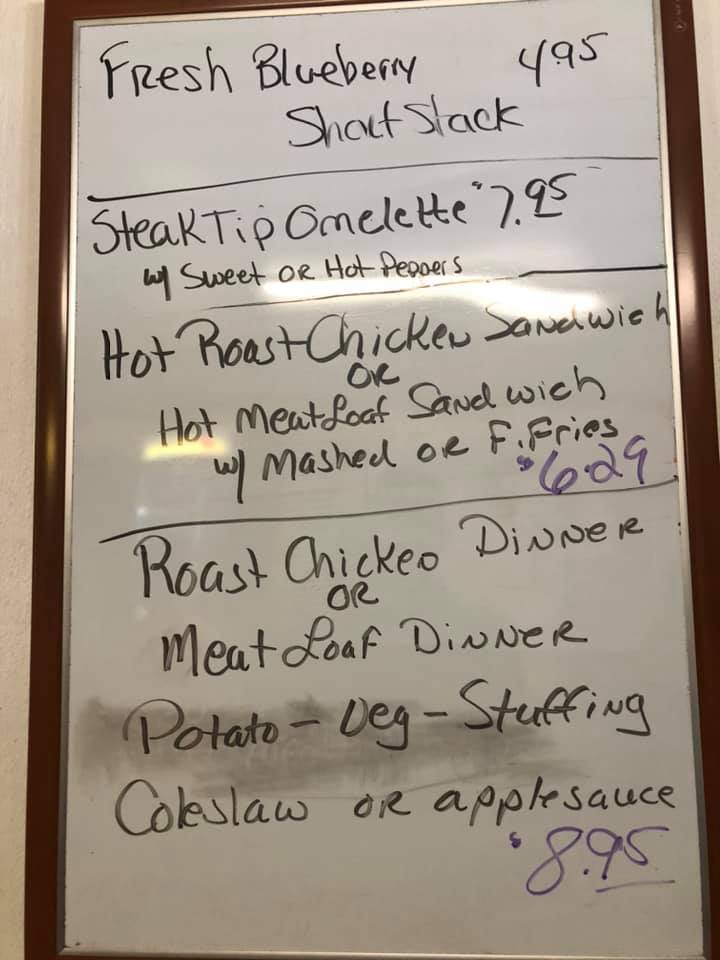 Fresh Blueberry 495
Short Stack
Steak Tip Omelette $7.95
w/ Sweet OR Hot Peppers
Hot Roast Chicken Sandwich
OR
Hot Meat Loaf Sandwich
w/ Mashed OR F. Fries
$6.29
Roast Chicken Dinner
OR
Meat Loaf Dinner
Potato - Veg - Stuffing
Coleslaw OR applesauce
$8.95